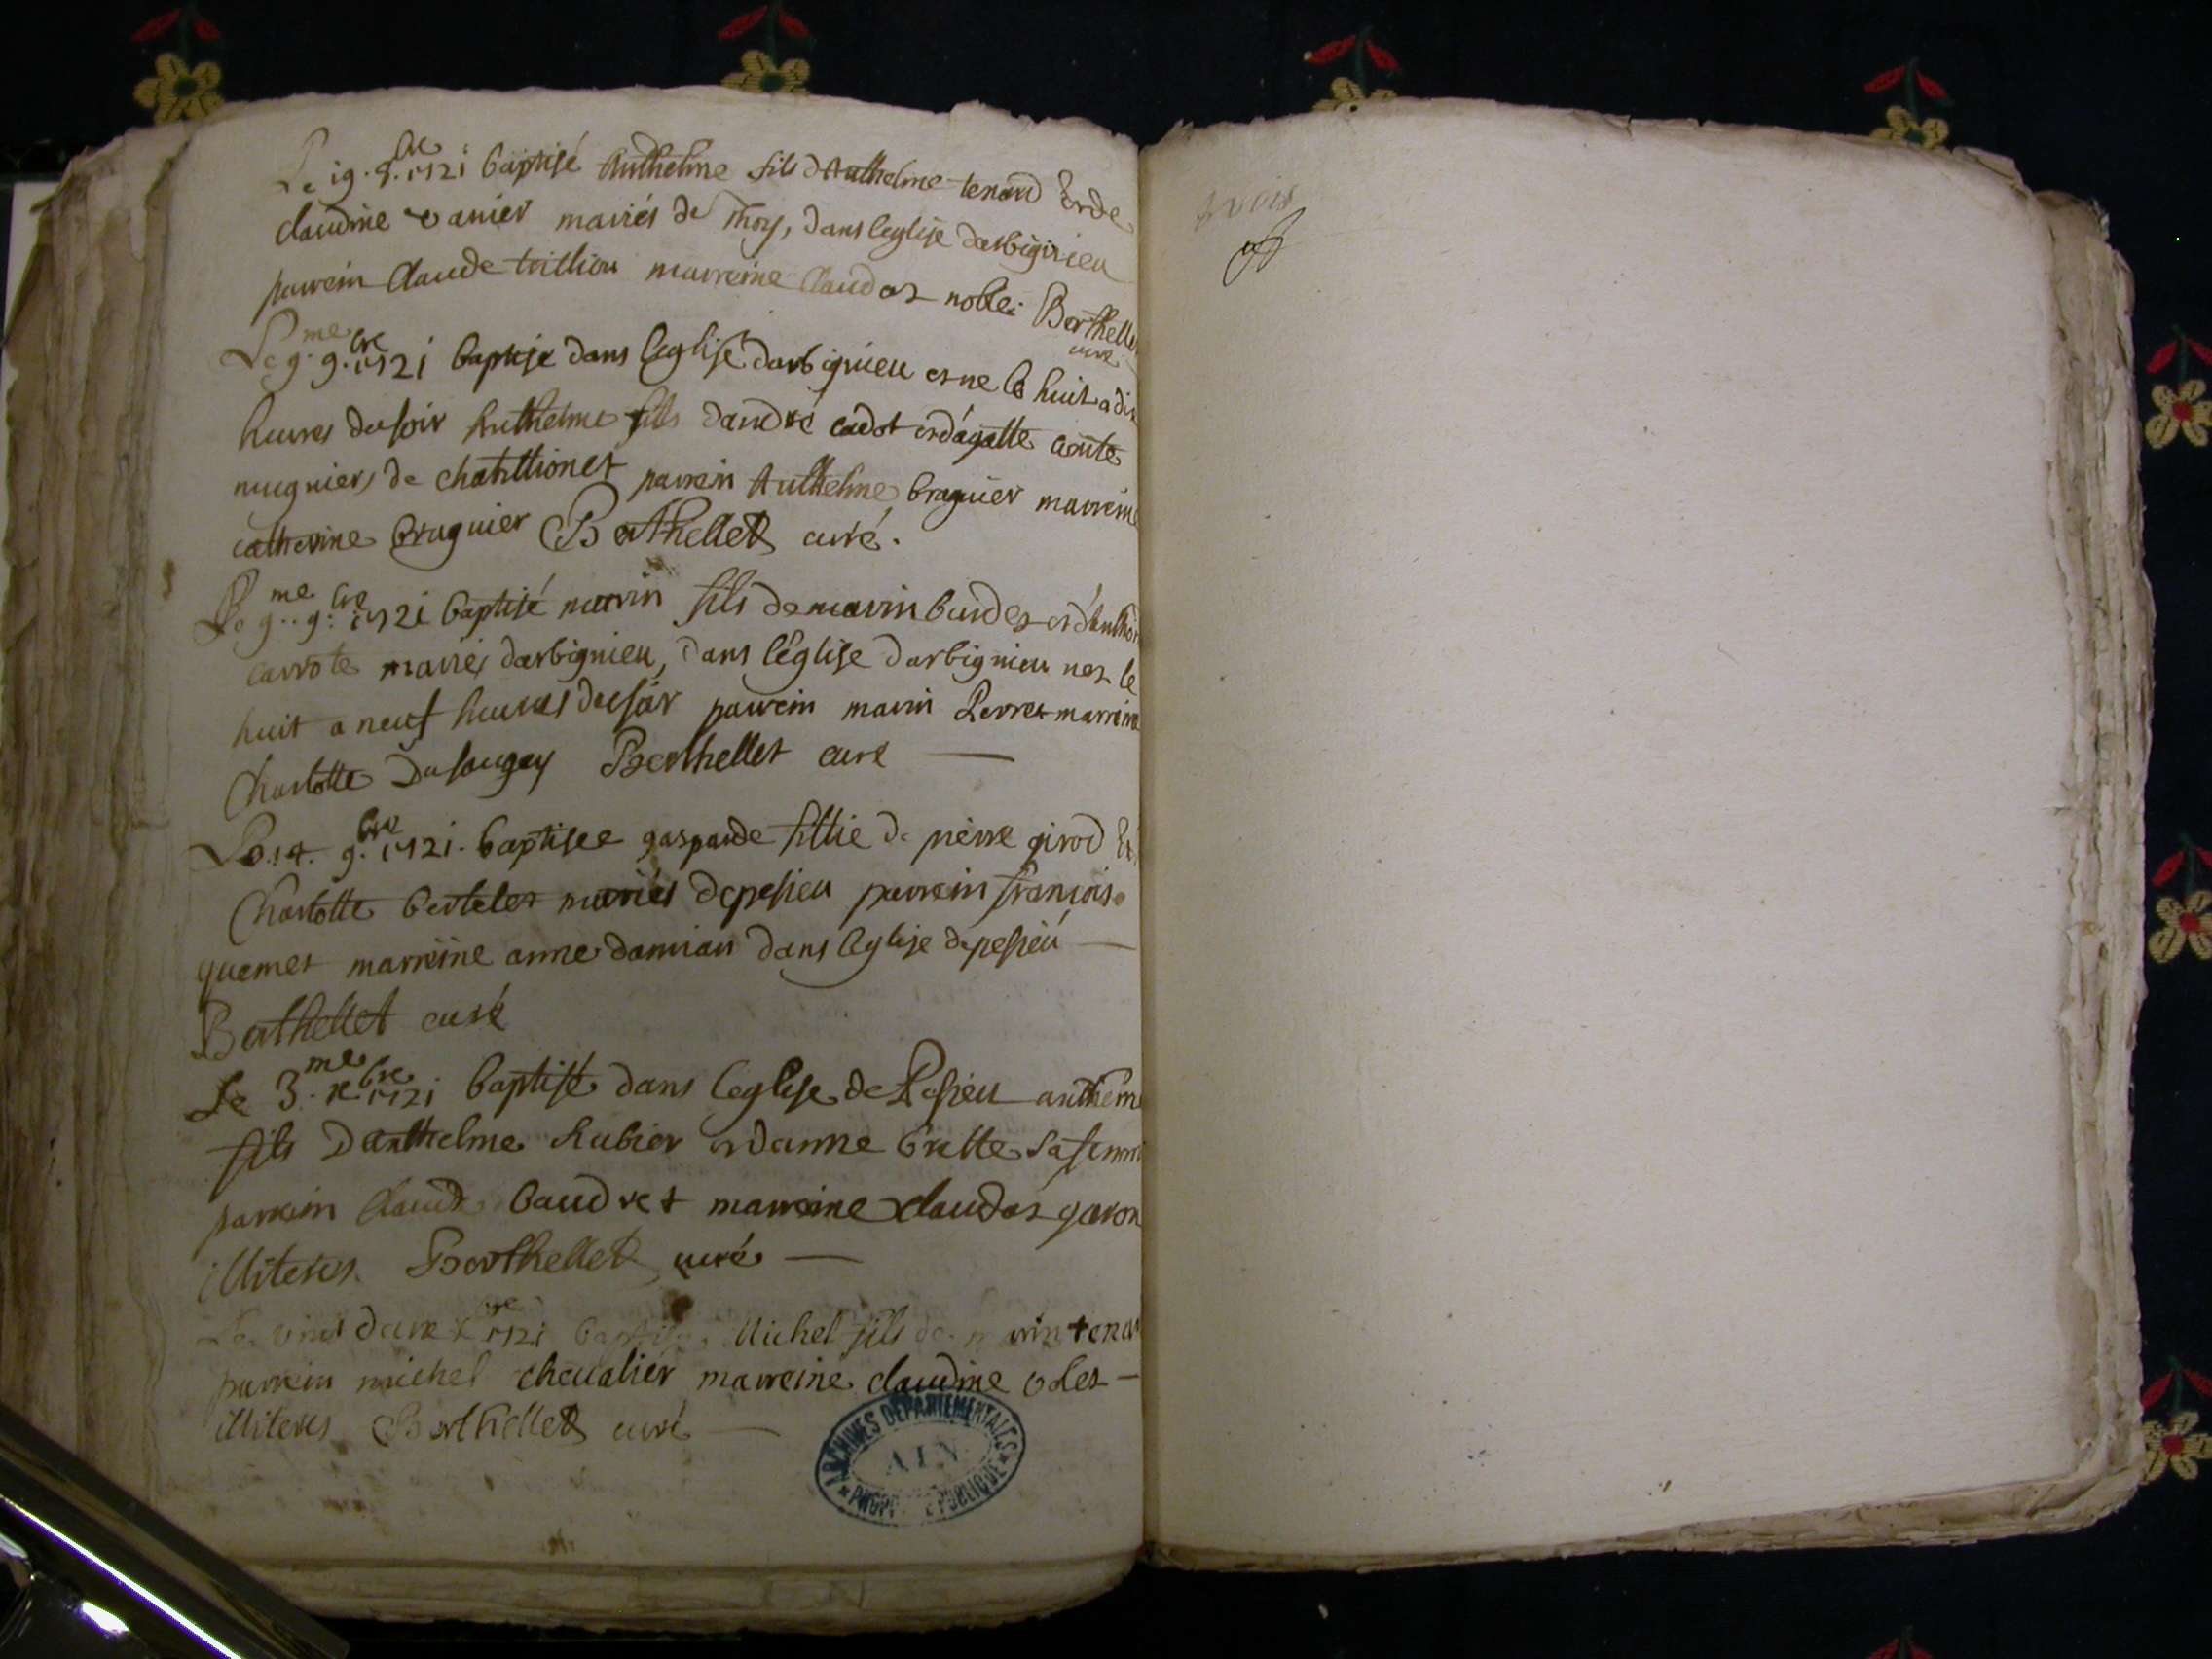 Le 19. 8.bre 1721 baptisé Anthelme fils d'Anthelme tenand Et de
claudine vanier mariés de Thoy, dans leglise darbignieu
parrein Claude trillion marreine Claudaz noble. Berthellet
curé
Le 9.me 9.bre 1721 baptisé dans leglise darbignieu et ne le huit a dix
heures du soir Anthelme fils dandré cadot et dagatte
mugniers de chatillionet parrein Anthelme braguier marreine
catherine braguier Berthellet curé.
Le 9.me 9.bre 1721 baptisé marin fils de marin bardet et
carrote mariés darbignieu, dans l'église darbignieu nez le
huit a neuf heures du soir parrein marin Perret marreine
Charlotte Dusougey Berthellet curé
Le 14. 9.bre 1721. baptisee gasparde fillie de pierre girod Et
Charlotte bertelet mariés depesieu parrein françois
quemet marreine anne damian dans leglise depesieu
Berthellet curé
Le 3.me xbre 1721 baptisé dans leglise de Pesieu anthelme
fils Danthelme Rubier et danne brette sa femme
parrein Claude baudret marreine claudaz garon
illiteres. Berthellet curé
Le xbre 1721 baptisé Michel fils de marin tenand
parrein michel chevalier marreine claudine
illiteres Berthellet curé
ARCHIVES DEPARTEMENTALES
AIN
PUBLIQUE